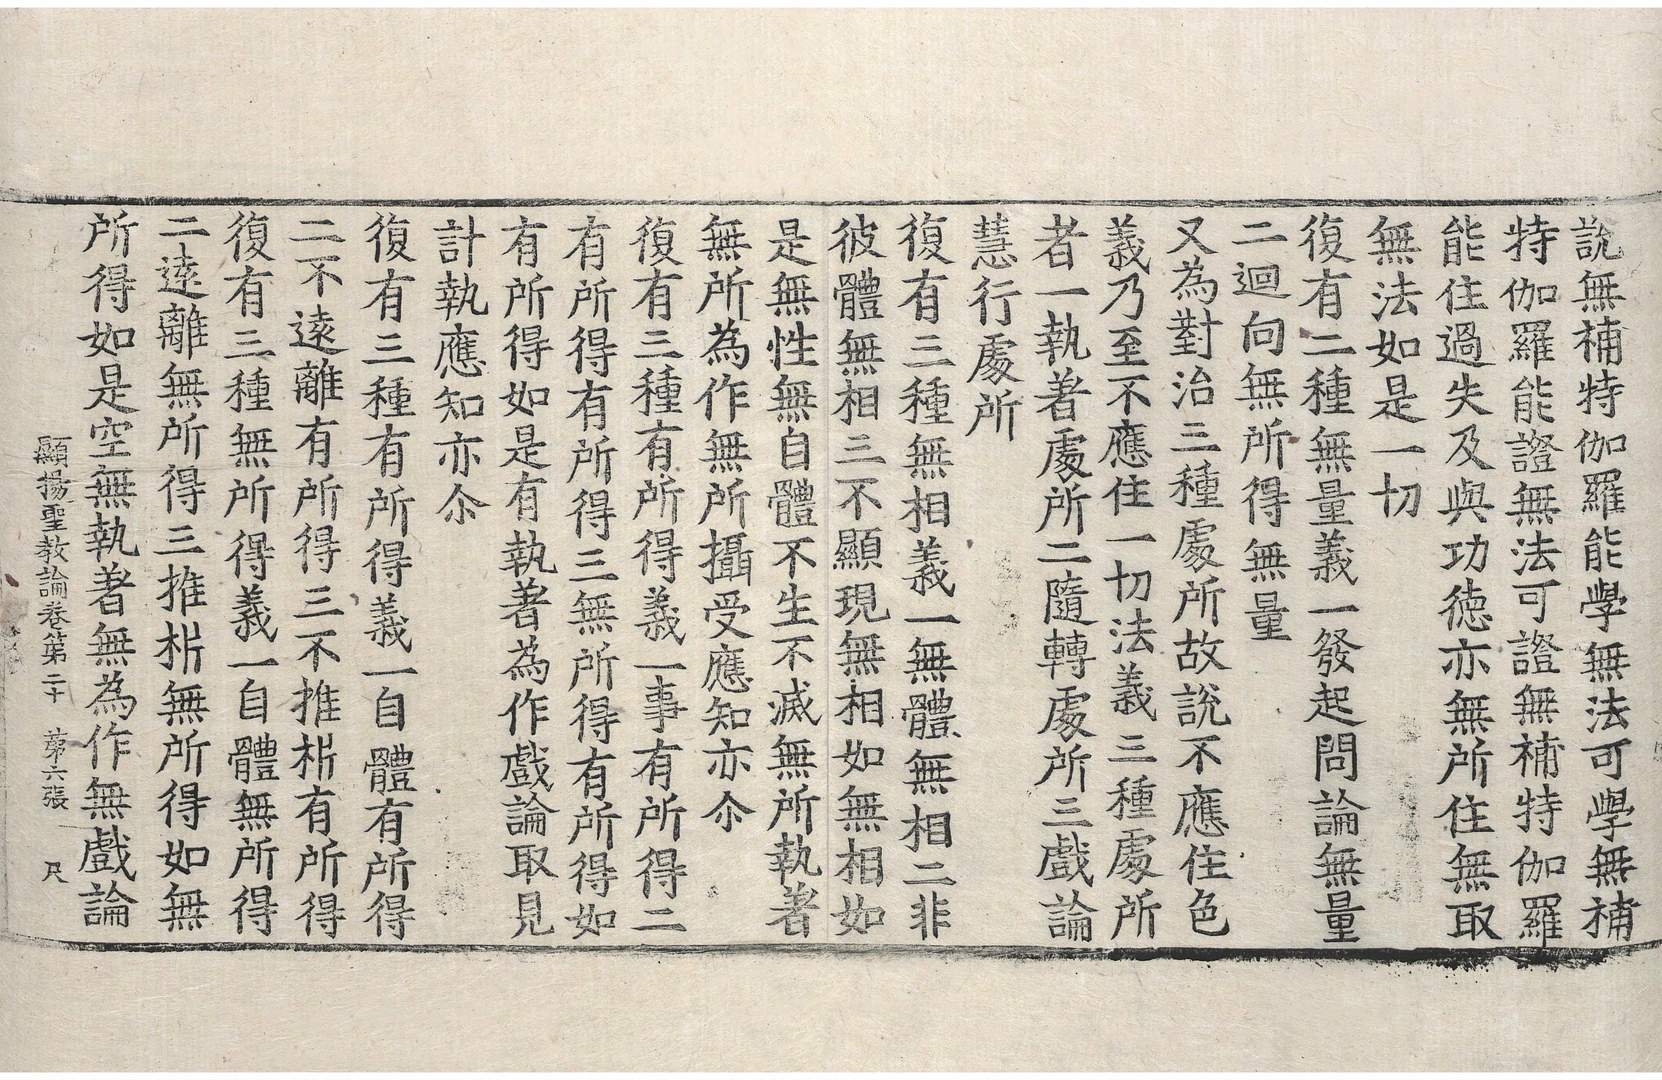 說無補特伽羅能學無法可學無補
特伽羅能證無法可證無補特伽羅
能住過失及與功德亦無所住無取
無法如是一切
復有二種無量義一發起問論無量
二迴向無所得無量
又為對治三種處所故說不應住色
義乃至不應住一切法義三種處所
者一執著處所二隨轉處所三戲論
慧行處所
復有三種無相義一無體無相二非
彼體無相三不顯現無相如無相如
是無性無自體不生不滅無所執著
無所為作無所攝受應知亦尒
復有三種有所得義一事有所得二
有所得有所得三無所得有所得如
有所得如是有執著為作戲論取見
計執應知亦尒
復有三種有所得義一自體有所得
二不遠離有所得三不推析有所得
復有三種無所得義一自體無所得
二遠離無所得三推析無所得如無
所得如是空無執著無為作無戲論
顯揚聖教論卷第二十 第六張 尺